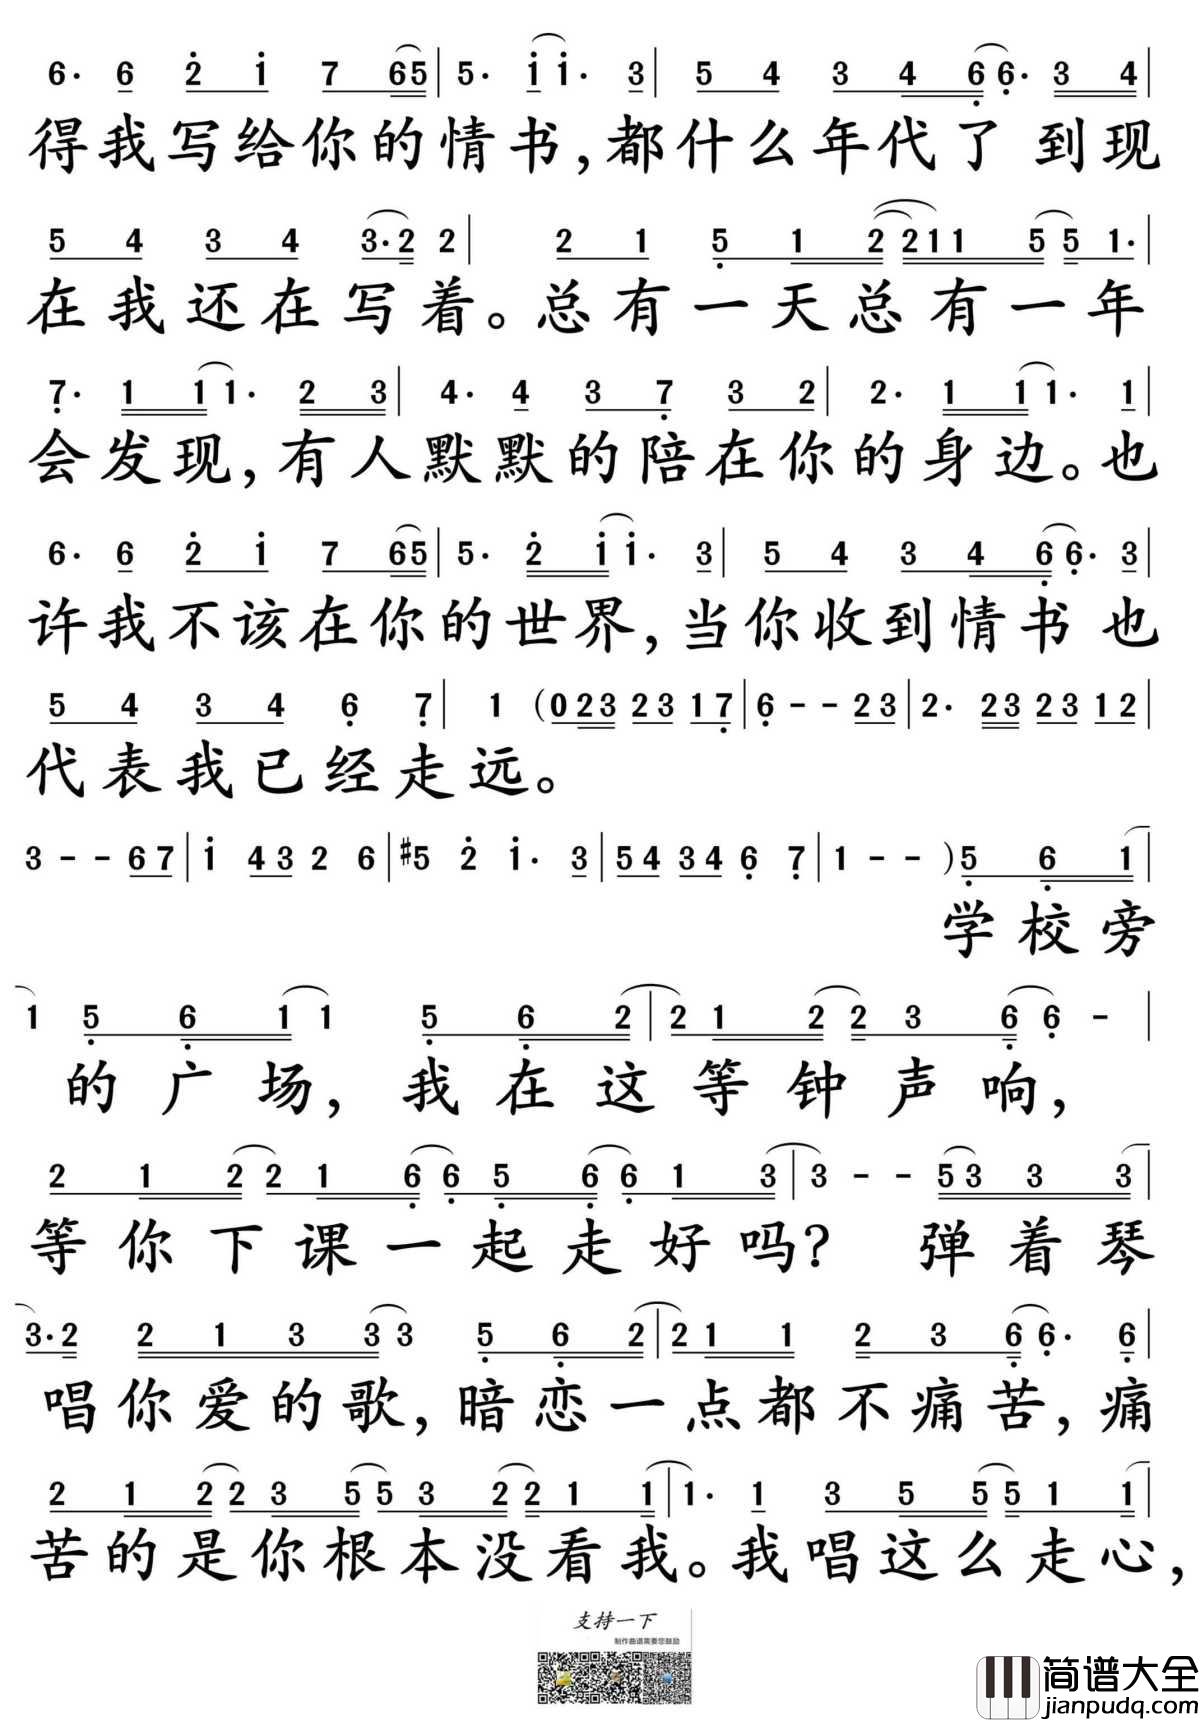 6· 6 2 1 7 65 | 5· 1 1· 3 | 5 4 3 4 6 6· 3 4 |
得我写给你的情书,都什么年代了 到现
5 4 3 4 3·2 2 | 2 1 5 1 2 211 5 5 1· |
在我还在写着。总有一天总有一年
7· 1 1 1· 2 3 | 4· 4 3 7 3 2 | 2· 1 1 1· 1 |
会发现,有人默默的陪在你的身边。也
6· 6 2 1 7 65 | 5· 2 1 1· 3 | 5 4 3 4 6 6· 3 |
许我不该在你的世界,当你收到情书也
5 4 3 4 6 7 | 1 (023 23 17 | 6 - - 23 | 2· 23 23 12 |
代表我已经走远。
3 - - 67 | 1 43 2 6 | #5 2 1· 3 | 54 34 6 7 | 1 - - )5 6 1 |
学校旁
1 5 6 1 1 5 6 2 | 2 1 2 2 3 6 6 - |
的广场,我在这等钟声响,
2 1 2 2 1 6 6 5 6 6 1 3 | 3 - - 53 3 3 |
等你下课一起走好吗? 弹着琴
3·2 2 1 3 3 3 5 6 2 | 2 1 1 2 3 6 6· 6 |
唱你爱的歌,暗恋一点都不痛苦,痛
2 1 2 2 3 5 5 3 2 2 1 1 | 1· 1 3 5 5 5 1 1 |
苦的是你根本没看我。我唱这么走心,
支持一下
制作曲谱需要您鼓励
简谱大全
jianpudq.com